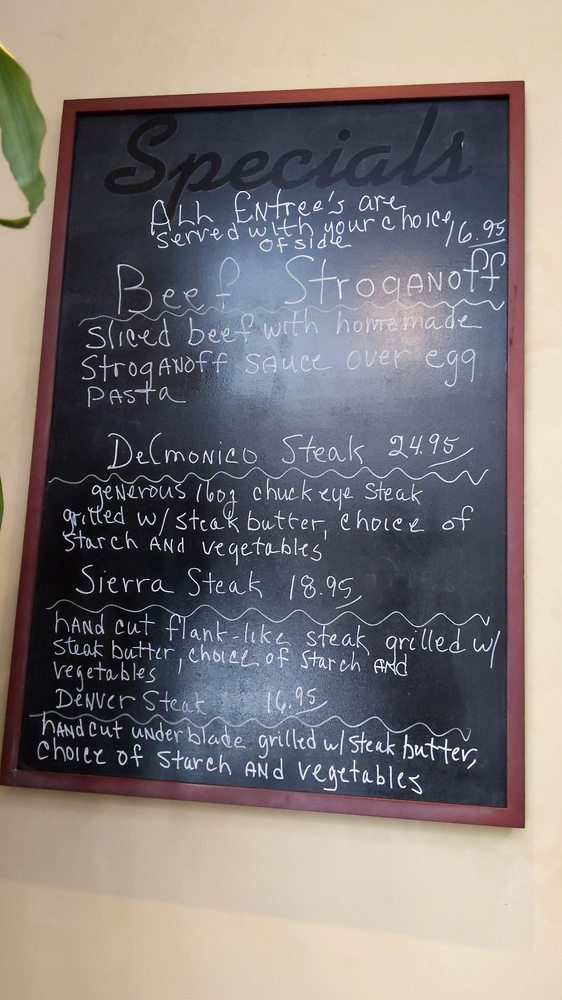 Specials
All Entree's are
served with your choice
of side 16.95
Beef Stroganoff
sliced beef with homemade
Stroganoff sauce over egg
pasta
Delmonico Steak 24.95
generous 16oz chuck eye steak
grilled w/ steak butter, choice of
starch and vegetables
Sierra Steak 18.95
hand cut flank-like steak grilled w/
steak butter, choice of starch and
vegetables
Denver Steak 16.95
handcut under blade grilled w/ steak butter,
choice of starch and vegetables